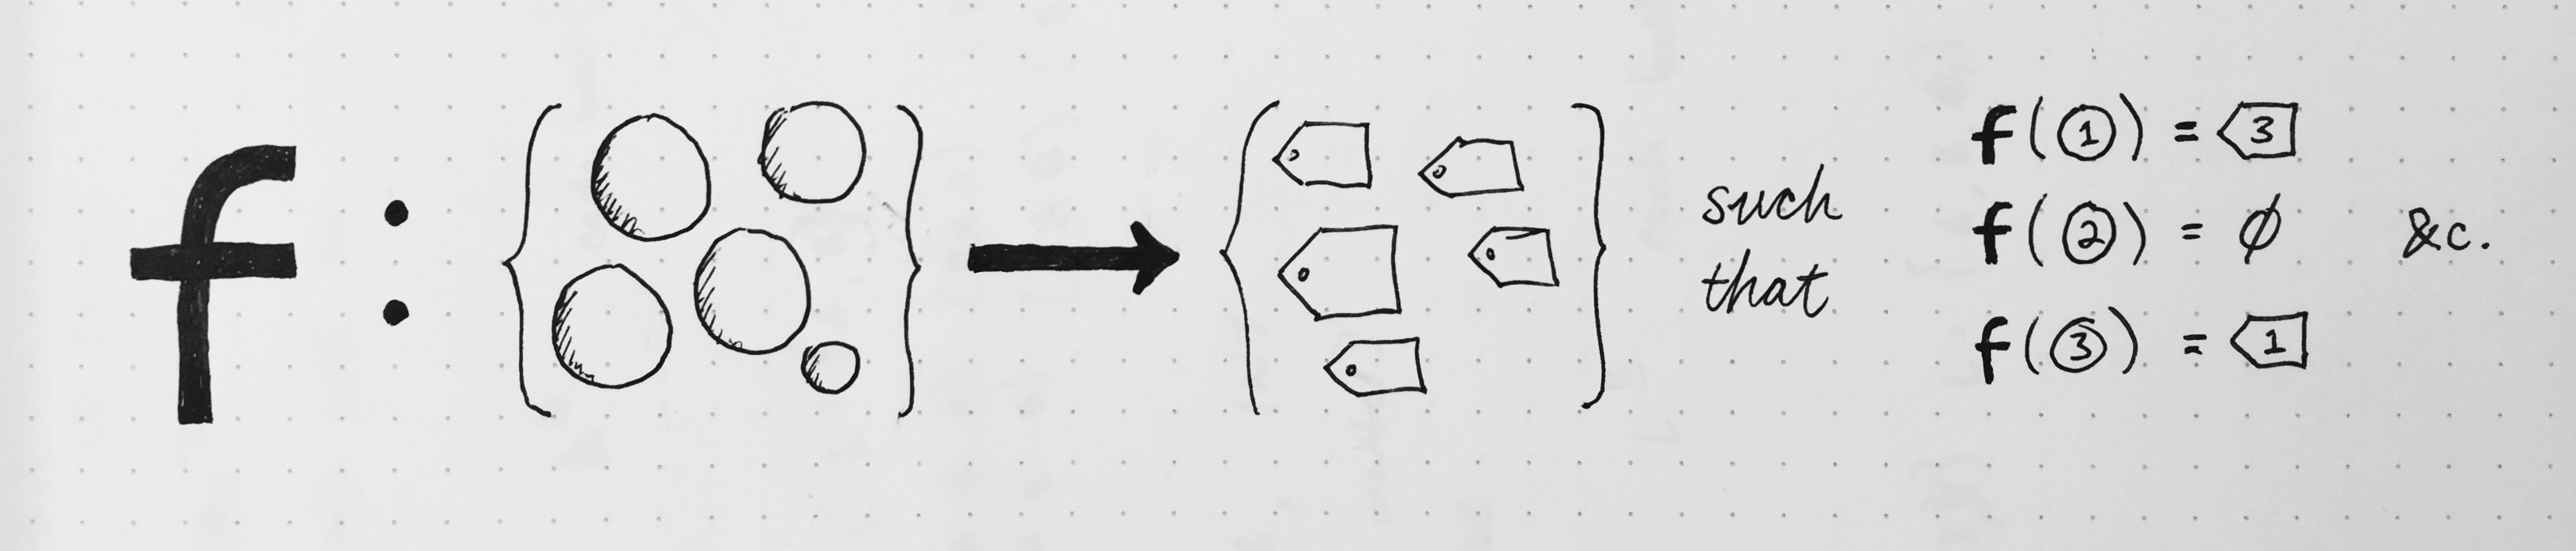 f : { } → { } such that
f(①) = 3
f(②) = ∅ &c.
f(③) = 1